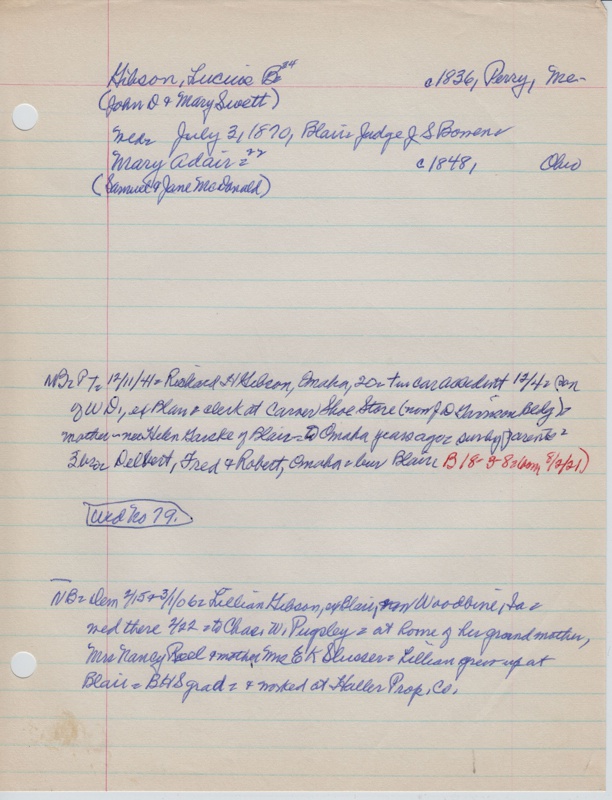 Gibson, Lucius B= 24 c1836, Perry, Me-
(John D & Mary Swett)
Med= July 3, 1870, Blair= Judge J S Bowen=
Mary Adair= 22 c1848, Ohio
(Samuel & Jane McDonald)
NB= PT= 12/11/41= Richard H Gibson, Omaha, 20= in car accident 12/4= son
of W D, ex Blair & clerk at Carver Shoe Store (now J D Harrison Bldg)=
mother= nee Helen of Blair= to Omaha years ago= surv by parents=
3 bro= Delbert, Fred & Robert, Omaha= bur Blair B 18-3-8= born 8/2/21)
Wed No 79.
NB= Dem 2/15 & 3/1/06= Lillian Gibson, ex Blair, now Woodbine, Ia=
wed there 2/22= to Chas. W. Pugsley= at home of her grandmother,
Mrs Nancy Reel & mother Mrs E K Slusser= Lillian grew up at
Blair= BHS grad= & worked at Haller Prop. Co.